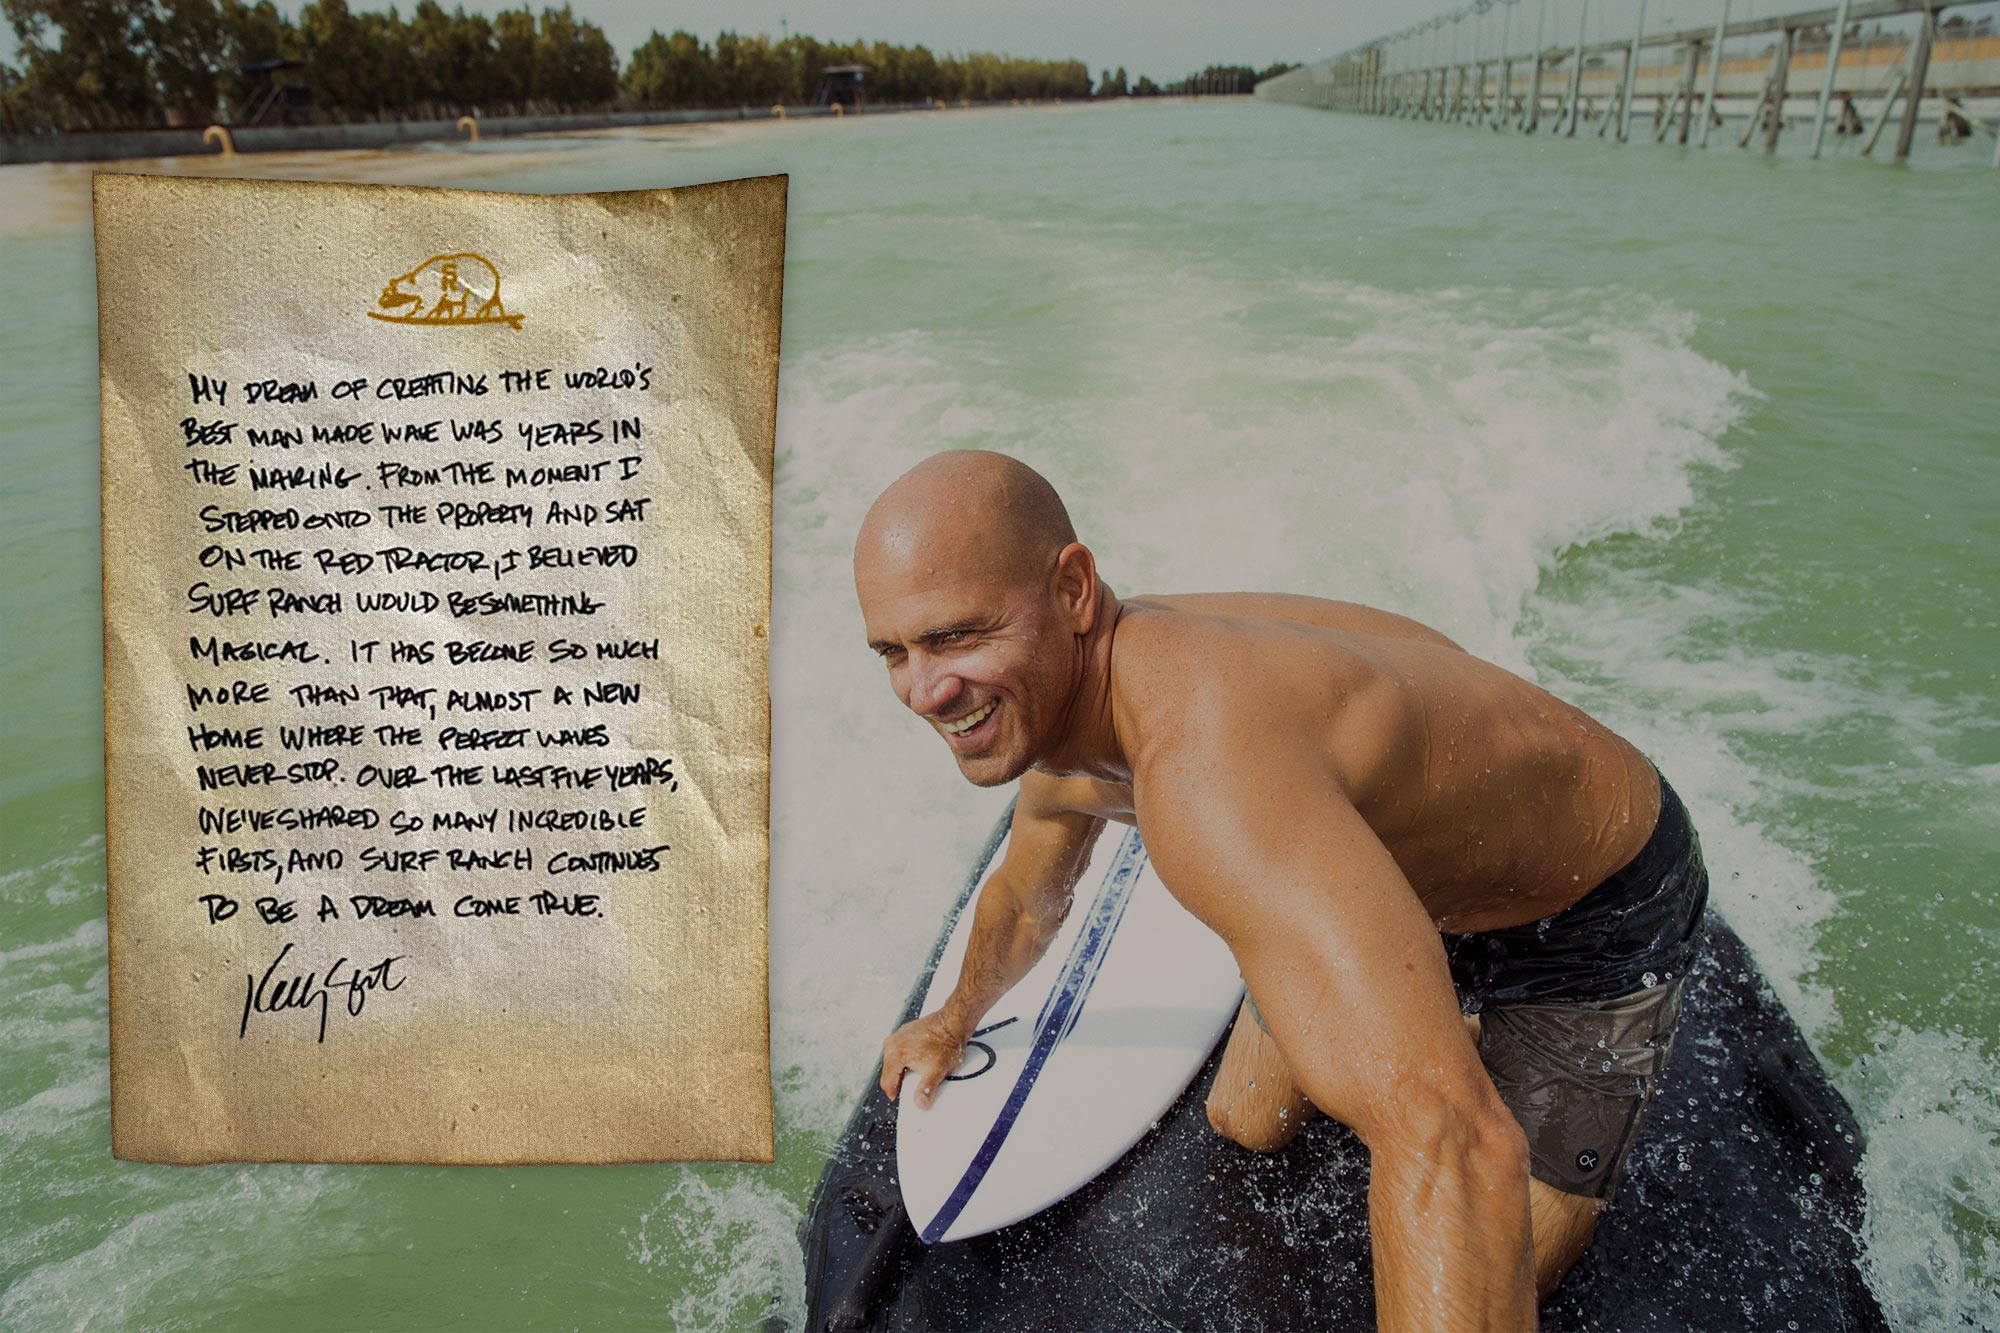 SR
MY DREAM OF CREATING THE WORLD'S
BEST MAN MADE WAVE WAS YEARS IN
THE MAKING. FROM THE MOMENT I
STEPPED ONTO THE PROPERTY AND SAT
ON THE RED TRACTOR, I BELIEVED
SURF RANCH WOULD BE SOMETHING
MAGICAL. IT HAS BECOME SO MUCH
MORE THAN THAT, ALMOST A NEW
HOME WHERE THE PERFECT WAVES
NEVER STOP. OVER THE LAST FIVE YEARS,
WE'VE SHARED SO MANY INCREDIBLE
FIRSTS, AND SURF RANCH CONTINUES
TO BE A DREAM COME TRUE.
Kelly Slater